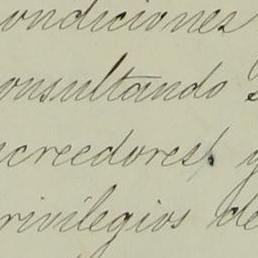 ondiciones
onsultando s
creedores, y
rivilegios de